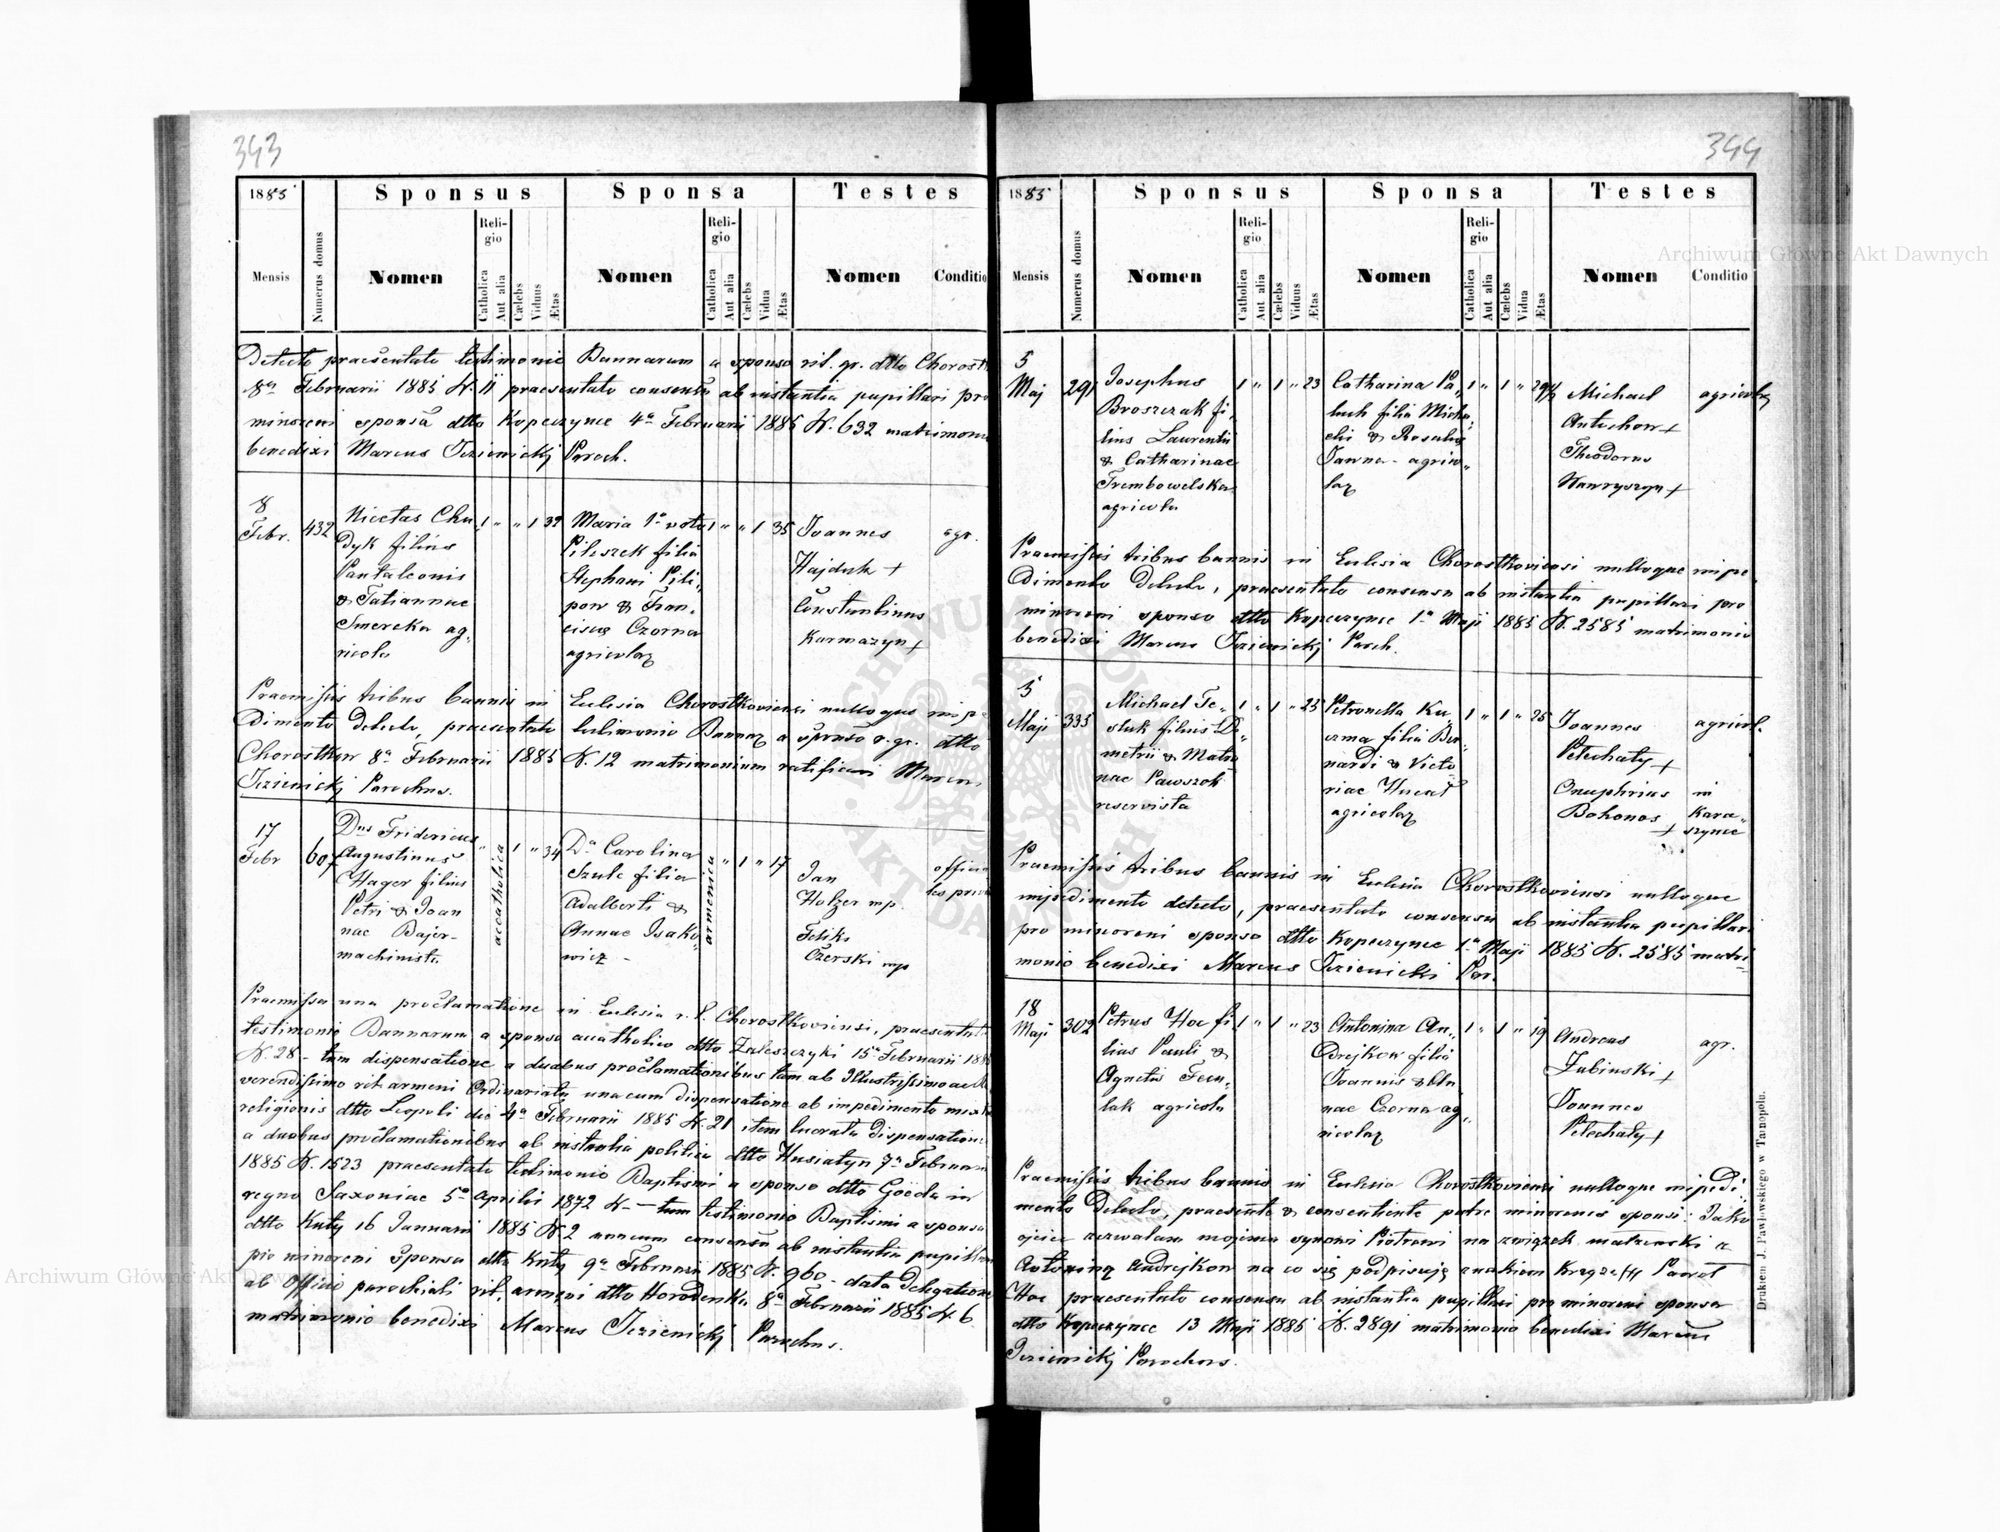 343
1885
Sponsus
Sponsa
Testes
Mensis
Numerus domus
Nomen
Religio
Catholica
Aut alia
Cælebs
Viduus
Ætas
Nomen
Religio
Catholica
Aut alia
Cælebs
Vidua
Ætas
Nomen
Conditio
Detecto praesentato testimonio Bannorum a sponso rit. gr. dtto
8a Februarii 1885 N. 11 praesentato consensu ab instantia pupillari pro
minoreni sponsa dtto Kopeczynce 4a Februarii 1885 N. 632
benedixi Marcus Paroch.
8
Febr.
432
Nicetas Chu
dyk filius
Pantaleonis
& Tatiannae
Smereka ag
ricola
1 " " 1 39
Maria 1o voto
Pileszek filia
Stephani Pili
pow & Fran
cisca Czorna
1 " " 1 35
Joannes
Hajduk +
Constantinus
Karmazyn +
agr.
Praemissis tribus bannis in Eclesia Choroskoviensi nulloque impe
dimento detecto, praesentato testimonio Bannor a sponso r. gr. dtto
Chorostkow 8a Februarii 1885 N. 12 matrimonium ratificavi Marcus
Parochus.
17
Febr
607
Dus Fridericus
Augustinus
Hager filius
Petri & Joan
nae Bajer
machinista
acatholica
1 " 34
Da Carolina
Szulc filia
Adalberti &
Annae Isako
wicz
armenica
" 1 " 17
Jan
Holzer mp.
Feliks
Czerski mp
Praemissa una proclamatione in Eclesia r. l. Chorostkoviensi,
testimonio Bannorum a sponso acatholico dtto Zaleszczyki 15a Februarii
N. 28 - tum dispensatione a duabus proclamationibus tam ab Illustrissimo ac
verendissimo rit armeni Ordinariatu unacum dispensatione ab impedimento
religionis dtto Leopoli die 4a Februarii 1885 N. 21 item dispensatione
a duabus proclamationibus ab instantia politica dtto Husiatyn 7a
1885 N. 1523 praesentato testimonio Baptismi a sponso dtto in
regno Saxoniae 5a Aprilis 1872 N - tum testimonio Baptismi a sponsa
dtto Kuty 16 Januarii 1885 N. 2 unacum consensu ab instantia
pro minoreni sponsa dtto Kuty 9a Februarii 1885 N. 960 - data delegatione
ab Officio parochiali rit. armeni dtto Horodenka 8a Februarii 1885 N. 6
matrimonio benedixi Marcus Parochus.
344
1885
Sponsus
Sponsa
Testes
Mensis
Numerus domus
Nomen
Religio
Catholica
Aut alia
Cælebs
Viduus
Ætas
Nomen
Religio
Catholica
Aut alia
Cælebs
Vidua
Ætas
Nomen
Conditio
5
Maj
291
Josephus
Broszczak fi
lius Laurentii
& Catharinae
Trembowelska
agricola
1 " 1 " 23
Catharina Pa
luch filia Micha
elis & Rosalia
1 " 1 "
Michael
Antochow +
Theodorus
Hawryszyn +
Praemissis tribus bannis in Eclesia Chorostkoviensi nulloque impe
dimento detecto, praesentato consensu ab instantia pupillari pro
minoreni sponso dtto Kopeczynce 1a Maji 1885 N. 2585 matrimonio
benedixi Marcus Paroch.
5
Maji
335
Michael Te
sluk filius De
metrii & Matro
nae Pawszok
reservista
1 " 1 " 23
Petronella Ku
czma filia Ber
nardi & Victo
riae
1 " 1 "
Joannes
Petechaty +
Onuphrius
Bohonos +
agricol.
in
Kara
szynce
Praemissis tribus bannis in Eclesia Chorostkoviensi nulloque
impedimento detecto, praesentato consensu ab instantia pupillari
pro minoreni sponso dtto Kopeczynce 1a Maji 1885 N. 2585 matri
monio benedixi Marcus Par.
18
Maji
302
Petrus Hoc fi
lius Pauli &
Agnetis
agricola
1 " 1 " 23
Antonina An
drejkow filia
Joannis & An
nae Czorna ag
1 " 1 " 19
Andreas
Zabinski +
Joannes
Petechaty +
agr.
Praemissis tribus bannis in Eclesia Chorostkoviensi nulloque impedi
mento detecto, praesente & consentiente patre minorenis sponsi: Jako
ojciec zezwalam mojemu synowi Piotrowi na związek małżenski z
Antoniną Andrejkow na co się podpisuję znakiem krzyża Paweł
Hoc praesentato consensu ab instantia pupillari pro minoreni sponso
dtto Kopeczynce 13 Maji 1885 N. 2891 matrimonio benedixi Marcus
Parochus.
Drukiem J. Pawłowskiego w Tarnopolu.
Archiwum Główne Akt Dawnych
Archiwum Główne Akt Dawnych